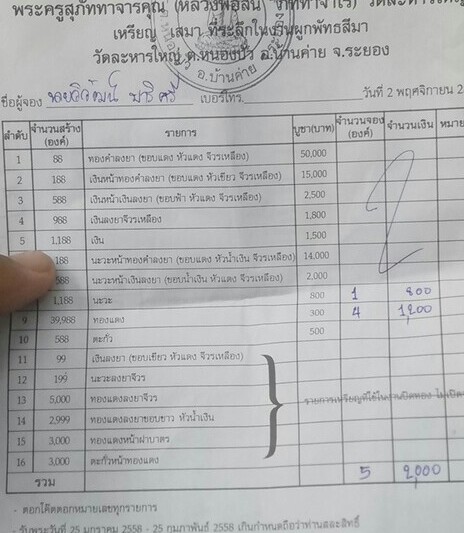 พระครูสุภัททาจารคุณ (หลวงพ่อสิน
เหรียญ เสมา ที่ระลึกในงานผูกพัทธสีมา
วัดละหารใหญ่ ต.หนองบัว อ.บ้านค่าย จ.ระยอง
อ.บ้านค่าย
ชื่อผู้จอง เบอร์โทร. วันที่ 2 พฤศจิกายน 2
ลำดับ จำนวนสร้าง (องค์) รายการ บูชา(บาท) จำนวนจอง (องค์) จำนวนเงิน หมาย
1 88 ทองคำลงยา (ขอบแดง หัวแดง จีวรเหลือง) 50,000
2 188 เงินหน้าทองคำลงยา (ขอบแดง หัวเขียว จีวรเหลือง) 15,000
3 588 เงินหน้าเงินลงยา (ขอบฟ้า หัวแดง จีวรเหลือง) 2,500
4 988 เงินลงยาจีวรเหลือง 1,800
5 1,188 เงิน 1,500
188 นะวะหน้าทองคำลงยา (ขอบแดง หัวน้ำเงิน จีวรเหลือง) 14,000
588 นะวะหน้าเงินลงยา (ขอบน้ำเงิน หัวแดง จีวรเหลือง) 2,000
1,188 นะวะ 800 1 800
9 39,988 ทองแดง 300 4 1,200
10 588 ตะกั่ว 500
11 99 เงินลงยา (ขอบเขียว หัวแดง จีวรเหลือง)
12 199 นะวะลงยาจีวร
13 5,000 ทองแดงลงยาจีวร รายการเหรียญที่ใช้ในงานปิดทอง ไม่เปิด
14 2,999 ทองแดงลงยาขอบขาว หัวน้ำเงิน
15 3,000 ทองแดงหน้าฝาบาตร
16 3,000 ตะกั่วหน้าทองแดง
รวม 5 2,000
- ตอกโค๊ตตอกหมายเลขทุกรายการ
- รับพระวันที่ 25 มกราคม 2558 - 25 กุมภาพันธ์ 2558 เกินกำหนดถือว่าท่านสละสิทธิ์